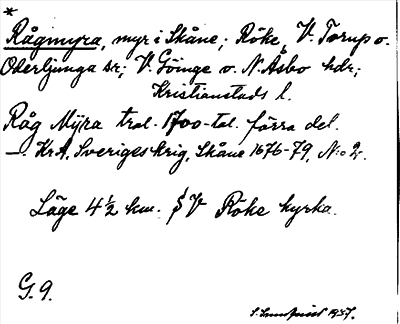 *
Rågmyra, myr i Skåne; Röke, V. Torup o.
Oderljunga sr; V. Göinge o. N. Åsbo hdr;
Kristianstads l.
Råg Myra trol. 1700-tal. förra del.
—. KrA, Sveriges krig, Skåne 1676-79, N:o 2.
Läge 4½ km. SV Röke kyrka.
G. 9.
1937.